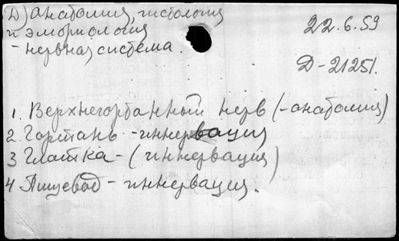 Д) анатомия, гистология
и эмбриология
- нервная система
22.6.59
Д-21251.
1. Верхнегортанный нерв (-анатомия)
2 Гортань - иннервация
3 Глотка - (иннервация)
4 Пищевод - иннервация.